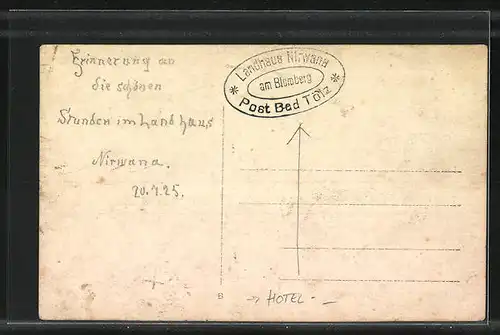 Erinnerung an
die schönen
Stunden im Landhaus
Nirwana.
20.7.25.
Landhaus Nirwana
am Blomberg
* Post Bad Tölz *
B
→ HOTEL -